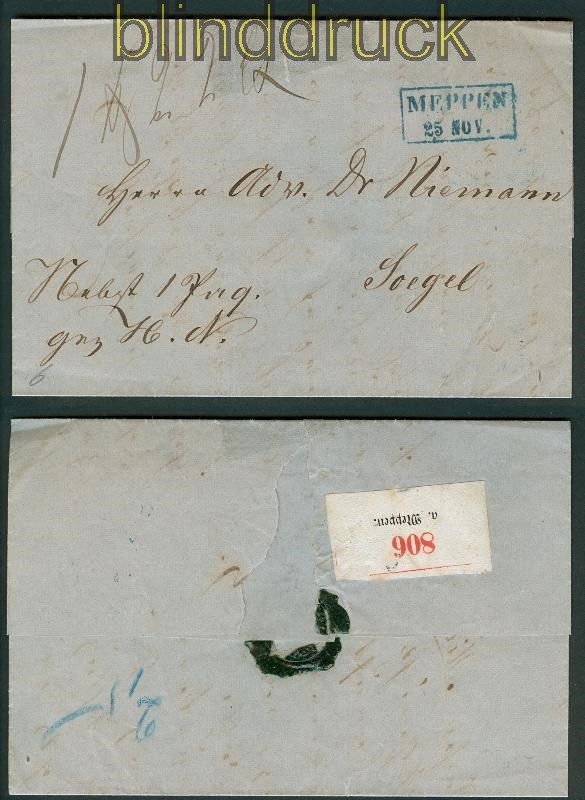 blinddruck
MEPPEN
25 NOV.
Herrn Adv. Dr Niemann
Soegel
Nebst 1 Pag.
gez H. N.
6
a. Meppen.
806